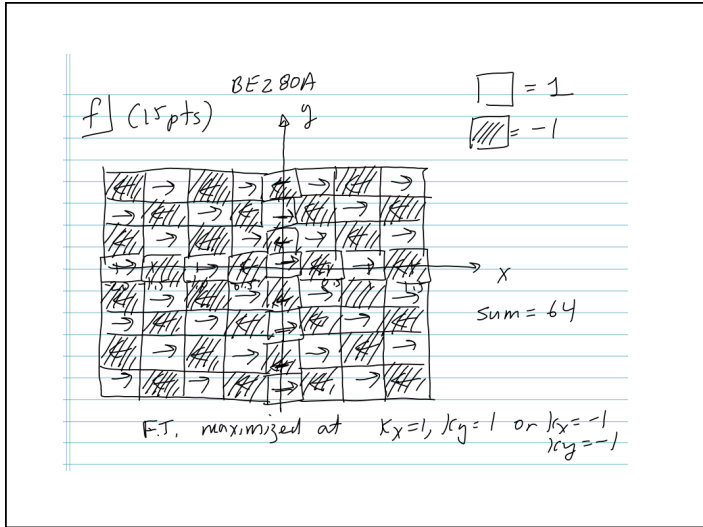 BE280A
f] (15 pts)
y
= 1
= -1
x
sum = 64
F.T. maximized at Kx=1, Ky=1 or Kx=-1
Ky=-1